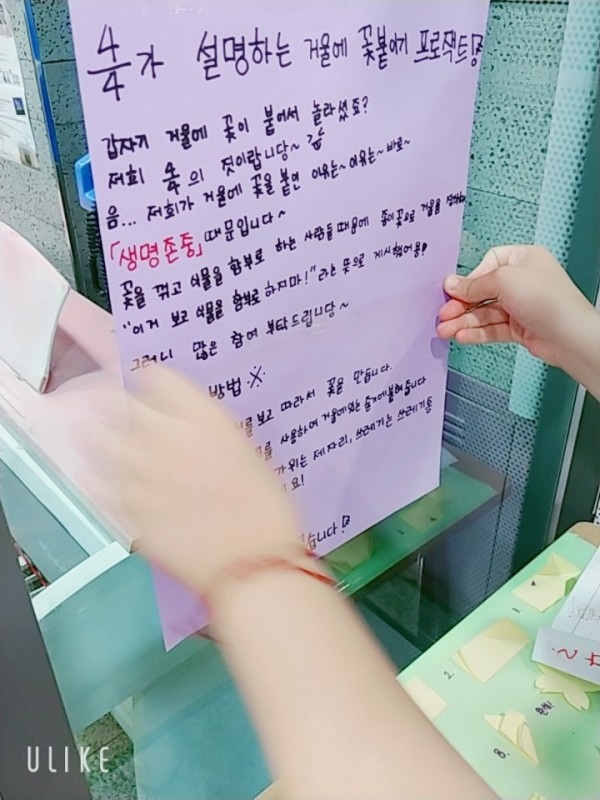 4/4가 설명하는 거울에 꽃붙이기 프로잭트!
갑자기 거울에 꽃이 붙어서 놀라셨죠?
저희 4/4의 짓이랍니당~
음... 저희가 거울에 꽃을 붙인 이유는~ 이유는~ 바로~
「생명존중」때문입니다~
꽃을 꺾고 식물을 함부로 하는 사람들 때문에 종이꽃으로 거울을
"이거 보고 식물을 함부로 하지마!"라는 뜻으로 게시했어용!
그러니 많은 참여 부탁드립니당~
방법 ※
보고 따라서 꽃을 만듭니다.
를 사용하여 거울에있는 줄기에붙여줍니다
가위는 제자리, 쓰레기는 쓰레기통
요!
습니다!
1.
2.
8.
완성!
ULIKE